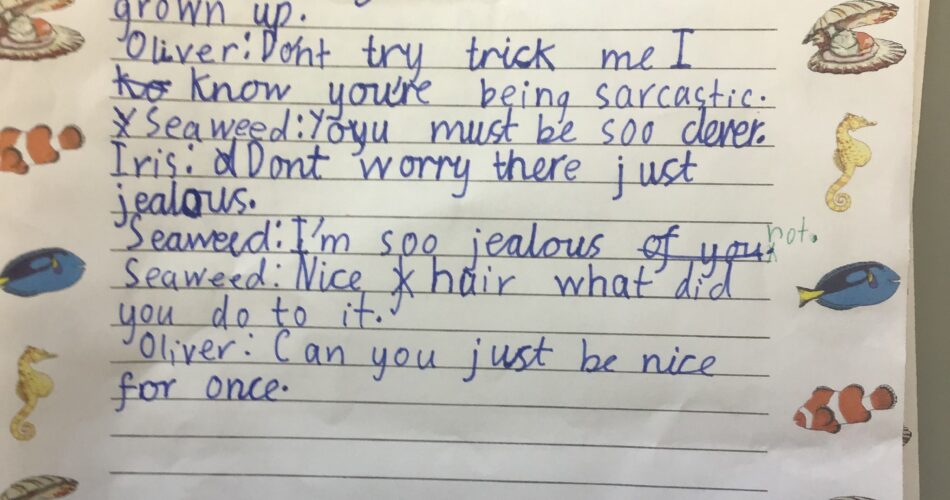 grown up.
Oliver: Dont try trick me I
know you're being sarcastic.
Seaweed: Yoyu must be soo clever.
Iris: dDont worry there just
jealous.
Seaweed: I'm soo jealous of you not.
Seaweed: Nice hair what did
you do to it.
Oliver: Can you just be nice
for once.